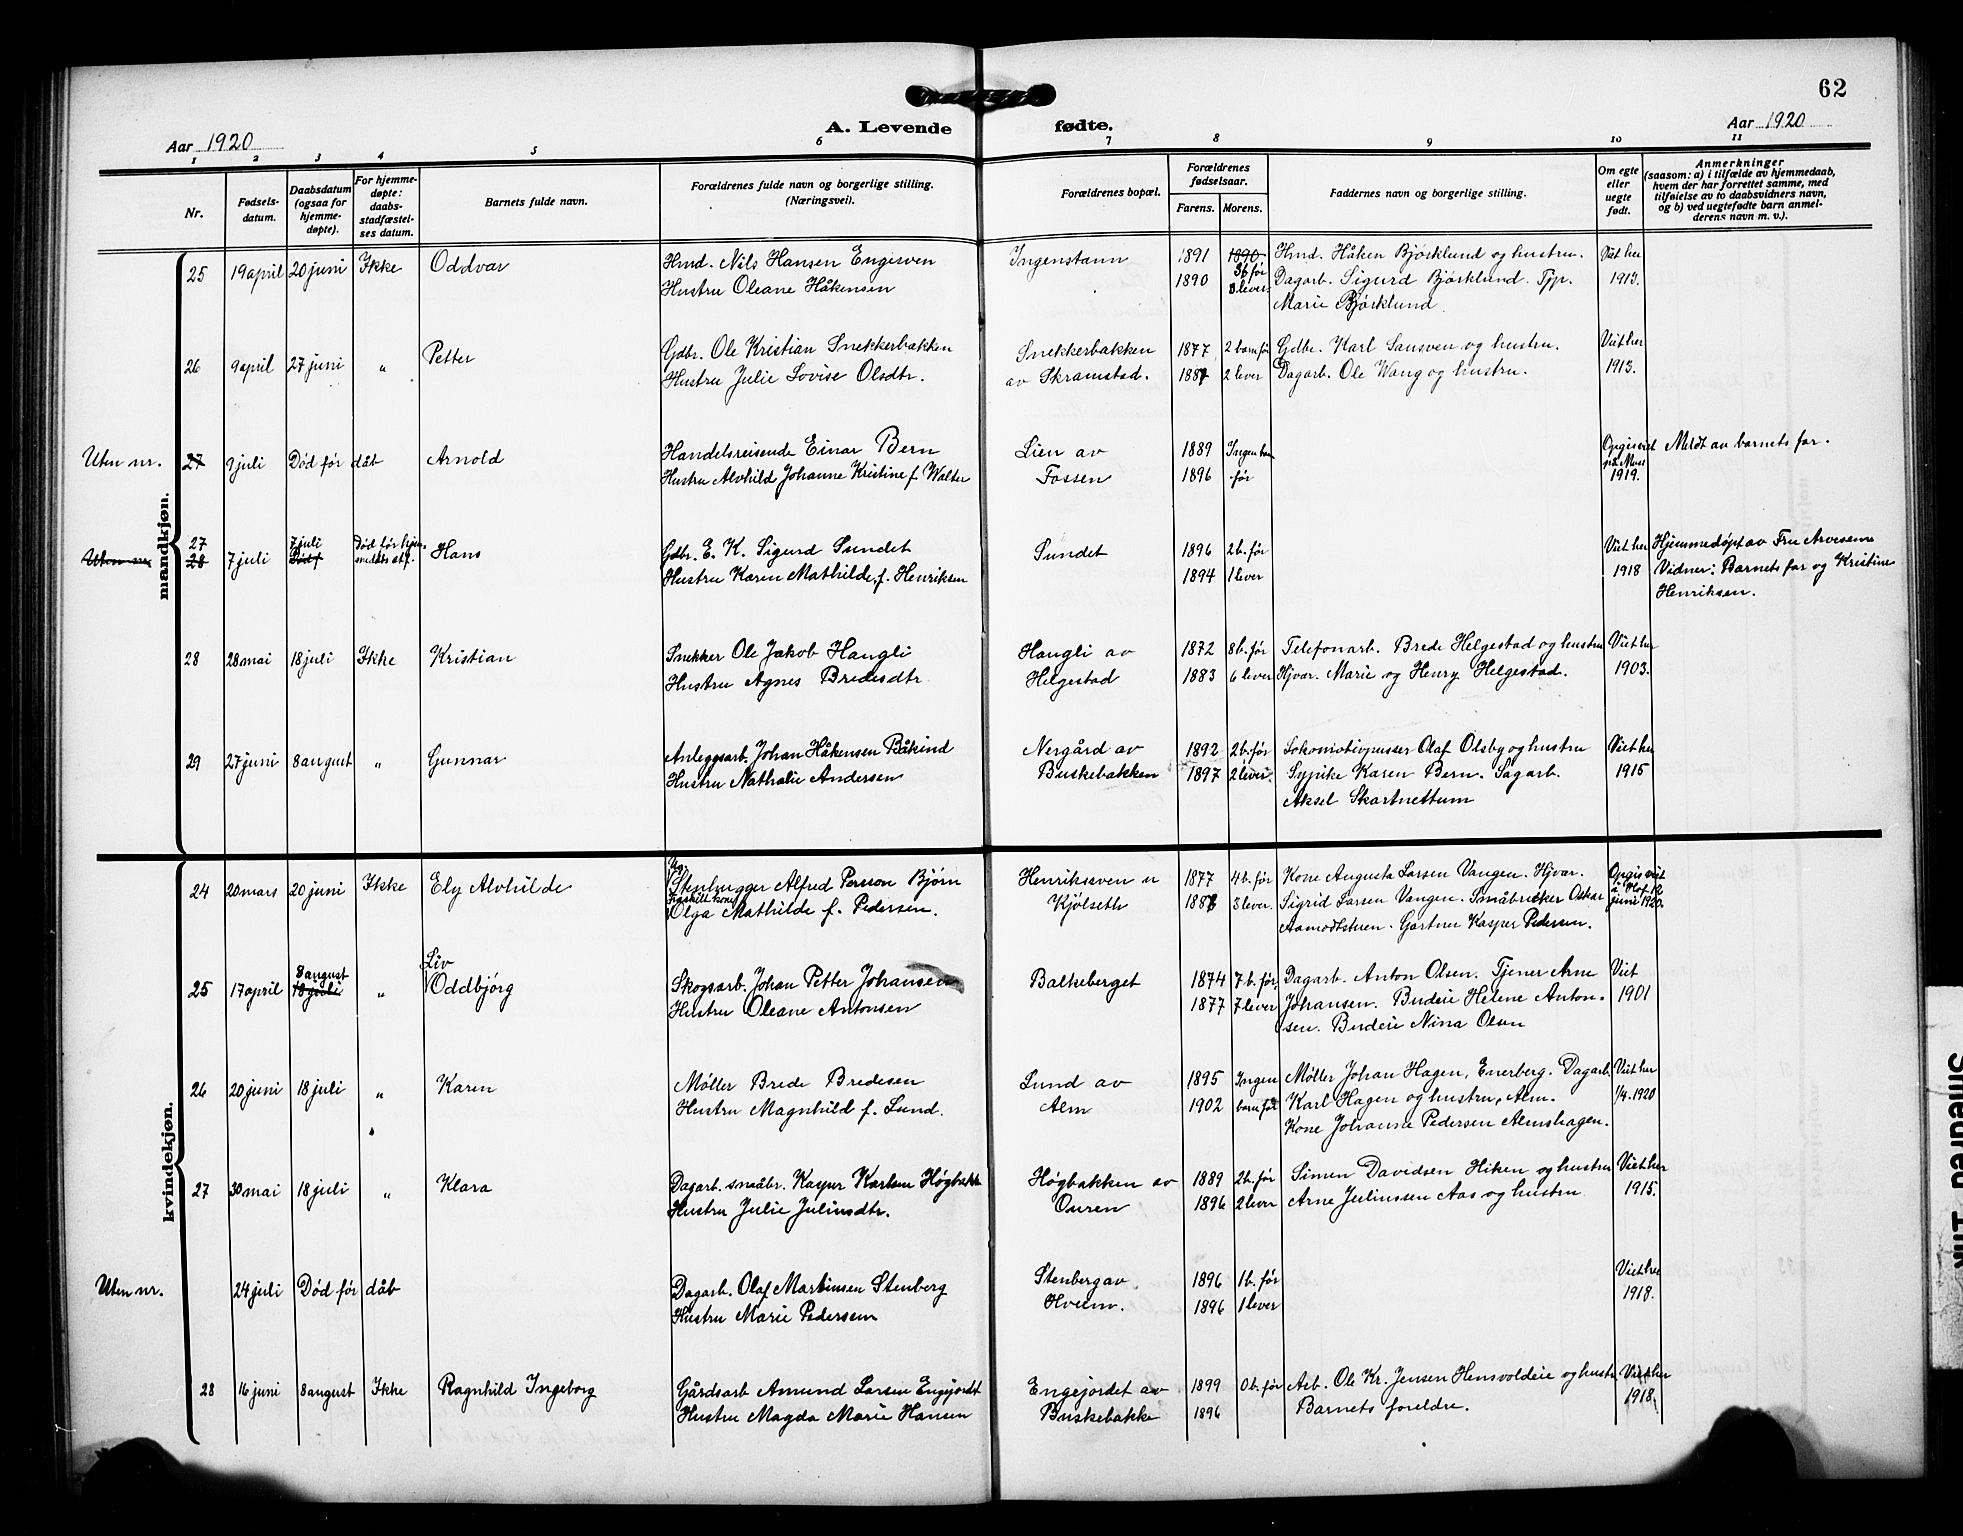 62
A. Levende fødte.
Aar 1920
Aar 1920
1 2 3 4 5 6 7 8 9 10 11
Nr.
Fødsels-
datum.
Daabsdatum
(ogsaa for
hjemme-
døpte).
For hjemme-
døpte:
daabs-
stadfæstel-
ses datum.
Barnets fulde navn.
Forældrenes fulde navn og borgerlige stilling.
(Næringsvei).
Forældrenes bopæl.
Forældrenes
fødselsaar.
Farens. Morens.
Faddernes navn og borgerlige stilling.
Om egte
eller
uegte
født.
Anmerkninger
(saasom: a) i tilfælde av hjemmedaab,
hvem der har forrettet samme, med
tilføielse av to daabsvidners navn,
og b) ved uegtefødte barn anmel-
derens navn m. v.).
mandkjøn.
25 19 april 20 juni Ikke Oddvar
Hmd. Nils Hansen Engisven
Hustru Oleane Håkensen
Ingenstann
1891 1890
1890 3b før
3 lever.
Hmd. Håken Bjørklund og hustru.
Dagarb. Sigurd Bjørklund. Tjp.
Marie Bjørklund.
Viet her
1913.
26 9 april 27 juni " Petter
Gdbr. Ole Kristian Snekkerbakken
Hustru Julie Lovise Olsdtr.
Snekkerbakken
av Skramstad.
1877 2 barn før
1887 2 lever
Gdbr. Karl Sansven og hustru.
Dagarb. Ole Wang og hustru.
Viet her
1913.
Uten nr. 27 9 juli Død før dåb Arnold
Handelsreisende Einar Bern
Hustru Alvhild Johanne Kristine f. Walter
Lien av
Fossen
1889 Ingen barn
1896 før
Opgis viet
på Moss
1919.
Meldt av barnets far.
Uten nr. 27 28 7 juli 7 juli Død f Død før hjem-
meddåb stf. Hans
Gdbr. E. K. Sigurd Sundet
Hustru Karen Mathilde, f. Henriksen
Sundet
1896 2 b. før
1894 1 lever
Viet her
1918
Hjemmedøpt av Fru Arvesen
Vidner: Barnets far og Kristine
Henriksen.
28 28 mai 18 juli Ikke Kristian
Snekker Ole Jakob Haugli
Hustru Agnes Bredesdtr.
Haugli av
Helgestad
1872 8 b. før
1883 6 lever
Telefonarb. Brede Helgestad og hustru
Hjvar. Marie og Henry Helgestad.
Viet her
1903.
29 27 juni 8 august " Gunnar
Anleggsarb. Johan Håkensen Båkind
Hustru Nathalie Andersen
Nergård av
Buskebakken
1892 2 b. før
1897 2 lever.
Lokomotivpusser Olaf Olsby og hustru
Sypike Karen Bern. Sagarb.
Aksel Skartnettum
Viet her
1915
kvindekjøn.
24 20 mars 20 juni Ikke Ely Alvhilde
Ug.
Stenhugger Alfred Person Bjørn
fraskilt kone
Olga Mathilde f. Pedersen.
Henriksven u
Kjølseth
1877 4 b. før
1886 3 lever.
Kone Augusta Larsen Vangen. Hjvar.
Sigrid Larsen Vangen. Småbruker Oskar
Aamodtstuen. Gartner Kasper Pedersen.
Opgis viet
i Hof 12
juni 1920.
25 17 april 8 august 18 juli " Liv
Oddbjørg
Skogsarb. Johan Petter Johansen
Hustru Oleane Antonsen
Balkeberget
1874 7 b. før.
1877 7 lever
Dagarb. Anton Olsen. Tjener Arne
Johansen. Budeie Helene Anton-
sen. Budeie Nina Olsen
Viet
1901
26 20 juni 18 juli " Karen
Møller Brede Bredesen
Hustru Magnhild f. Lund.
Lund av
Alm
1895 Ingen
1902 barn før
Møller Johan Hagen, Enerberg. Dagarb.
Karl Hagen og hustru, Alm.
Kone Johanne Pedersen Almshagen.
Viet her
1/4. 1920
27 30 mai 18 juli " Klara
Dagarb. småbr. Kasper Karlsen Høgbakk
Hustru Julie Juliusdtr.
Høgbakken av
Ouren
1889 2 b. før
1896 2 lever
Simen Davidsen Hiken og hustru
Arne Juliussen Aas og hustru
Viet her
1915.
Uten nr. 24 juli Død før dåb
Dagarb. Olaf Martinsen Stenberg
Hustru Marie Pedersen
Stenberg av
Hveem.
1896 1 b. før
1896 1 lever
Viet her
1918.
28 16 juni 8 august Ikke Ragnhild Ingeborg
Gårdsarb Amund Larsen Engejordt
Hustru Magda Marie Hansen
Engejordet av
Buskebakke
1899 0 b. før
1896
Arb. Ole Kr. Jensen Hensvoldeie og hustr
Barnets foreldre.
Viet her
1918.